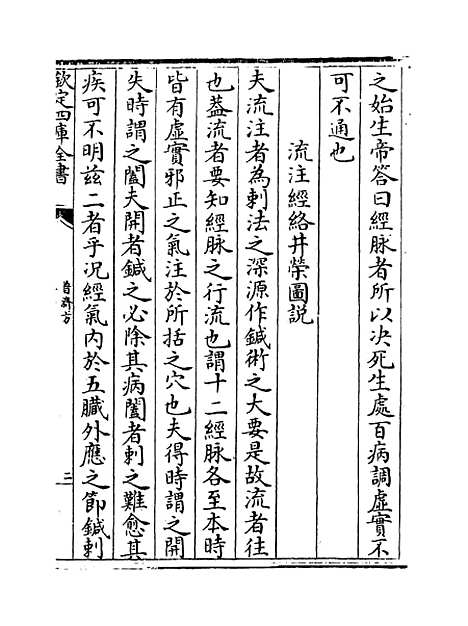 之始生帝答曰經脉者所以決死生處百病調虛實不
可不通也
流注經絡井滎圖説
夫流注者為刺法之深源作鍼術之大要是故流者往
也葢流者要知經脉之行流也謂十二經脉各至本時
皆有虛實邪正之氣注於所括之穴也夫得時謂之開
失時謂之闔夫開者鍼之必除其病闔者刺之難愈其
疾可不明兹二者乎况經氣内於五臟外應之節鍼刺
欽定四庫全書
普濟方
三